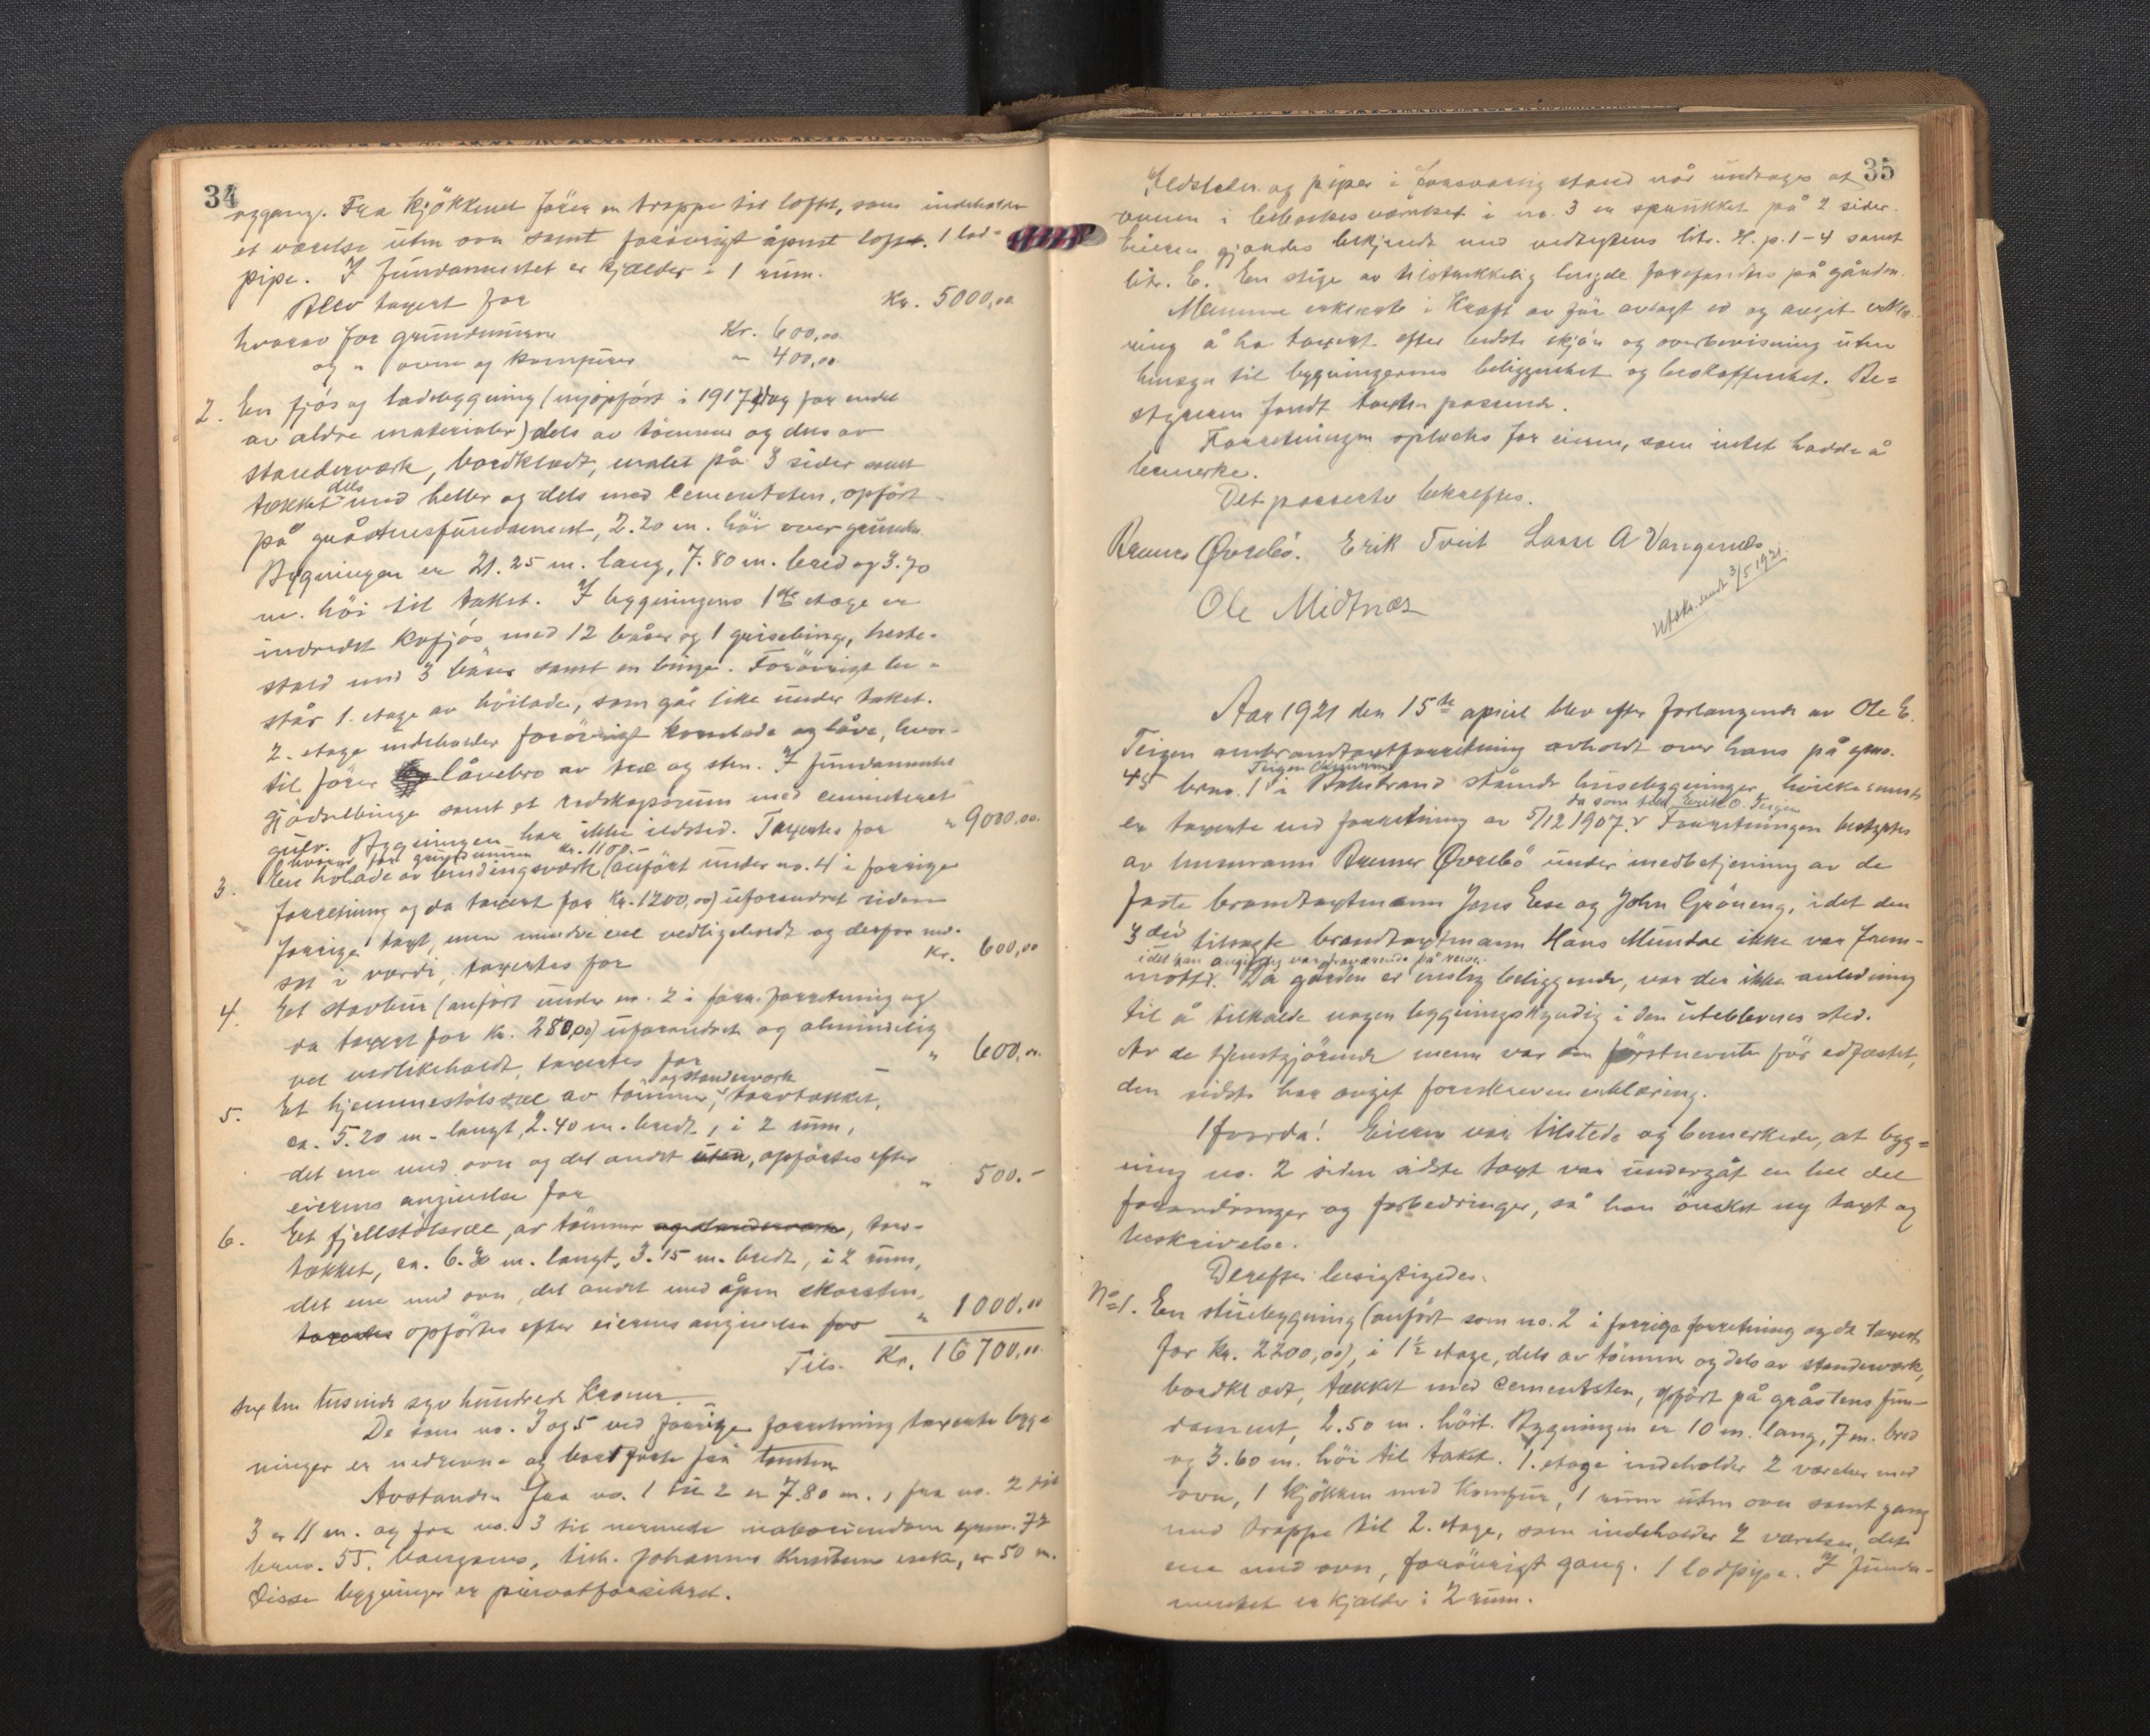 34
opgang. Fra kjökkenet förer en trappe til loftet, som indeholder
et værelse uten ovn samt forövrigt åpent loft. 1 lod-
pipe. I fundamentet er kjælder i 1 rum.
Blev taxert for Kr. 5000,00
hvorav for grundmuren Kr. 600,00
og " ovne og komfurer " 400,00
2. En fjös og ladebygning (nyopfört i 1917, dog for endel
av ældre materialer) dels av tömmer og dels av
standerværk, bordklædt, malet på 3 sider samt
tækket dels med heller og dels med cementsten, opfört
på gråstensfundament, 2.20 m. höi over grunden.
Bygningen er 21.25 m. lang, 7.80 m. bred og 3.70
m. höi til taket. I bygningens 1ste etage er
indredet kofjös med 12 båser og 1 grisebinge, heste-
stald med 3 båser samt en binge. Forövrigt be-
står 1. etage av höilade, som går like under taket.
2. etage indeholder forövrigt kornlade og låve, hvor-
til förer låvebro av træ og sten. I fundamentet
gjödselbinge samt et redskapsrum med cementeret
gulv. Bygningen har ikke ildsted. Taxertes for " 9000.00
hvorav for grundmuren Kr. 1100.-
3. En hölade av bindingsverk (anfört under no. 4 i forrige
forretning og da taxert for kr. 1200,00) uforandret siden
forrige taxt, men mindre vel vedlikeholdt og derfor ned-
sat i værdi, taxertes for Kr. 600,00
4. Et stavbur (anfört under no. 2 i forr. forretning og
da taxert for kr. 280,00) uforandret og almindelig
vel vedlikeholdt, taxertes for " 600,00
5. Et hjemmestölssel av tömmer og standerværk, torvtækket,
ca. 5.20 m. langt, 2.40 m. bredt, i 2 rum,
det ene med ovn og det andet uten, opförtes efter
eierens angivelse for " 500.-
6. Et fjellstölssel, av tömmer og standerværk, torv-
tækket, ca. 6.30 m. langt, 3.15 m. bredt, i 2 rum,
det ene med ovn, det andet med åpen skorsten,
taxertes opförtes efter eierens angivelse for " 1000,00
Tils. Kr. 16700,00
sexten tusinde syv hundrede Kroner.
De som no. 3 og 5 ved forrige forretning taxerte byg-
ninger er nedrevne og bortförte fra tomten
Avstanden fra no. 1 til 2 er 7.80 m., fra no. 2 til
3 er 11 m. og fra no. 3 til nermeste naboeiendom gnr. 72
brno. 55. Vangsnes, tilh. Johannes Knutsens enke, er 50 m.
Disse bygninger er privatforsikret.
35
Ildsteder og piper i forsvarlig stand når undtages at
ovnen i no. 3 er sprukket på 2 sider.
Eieren gjordes bekjendt med vedtegtens litr. H. p. 1-4 samt
litr. E. En stige av tilstrekkelig lengde forefandtes på gården.
Mennene erklærte i Kraft av för avlagt ed og avgit erklæ-
ring å ha taxert efter bedste skjön og overbevisning uten
hensyn til bygningernes beliggenhet og beskaffenhet. Be-
styreren fandt taxten passende.
Forretningen oplæstes for eieren, som intet hadde å
bemerke.
Det passerte bekreftes.
Bremer Øvrebö. Erik Tveit Lasse A Vangsnes
Ole Midtnes
Utskr. sendt 3/5 1921.
Aar 1921 den 15de april blev efter forlangende av Ole E.
Teigen ombrandtaxtforretning avholdt over hans på gno.
45 brno. 1 Teigen i Balestrand stående husebygninger hvilke senest
er taxerte ved forretning av 5/12 1907. da som tilh. Erik O. Teigen Forretningen bestyrtes
av lensmann Bremer Øvrebö under medbetjening av de
faste brandtaxtmænn Jens Ese og John Gröneng, idet den
3die tilsagte brandtaxtmann Hans Mundal ikke var frem-
mött, idet han angivelig var fraværende på reise. Da gården er enslig beliggende, var der ikke anledning
til å tilkalde nogen bygningskyndig i den uteblevnes sted.
Av de tjenstgjörende menn var den förstnevnte för edfæstet,
den sidste har avgit foreskreven erklæring.
Iforda! Eieren var tilstede og bemerkede, at byg-
ning no. 2 siden sidste taxt var undergåt en hel del
forandringer og forbedringer, så han önsket ny taxt og
beskrivelse.
Derefter besigtigedes:
No 1. En stuebygning (anfört som no. 2 i forrige forretning og da taxert
for kr. 2200,00), i 1½ etage, dels av tömmer og dels av standerværk,
bordklædt, tækket med cementsten, opfört på gråstens fun-
dament, 2.50 m. höit. Bygningen er 10 m. lang, 7 m. bred
og 3.60 m. höi til taket. 1. etage indeholder 2 værelser med
ovn, 1 kjökken med komfur, 1 rum uten ovn samt gang
med trappe til 2. etage, som indeholder 2 værelser, det
ene med ovn, forövrigt gang. 1 lodpipe. I funda-
mentet er kjælder i 2 rum.